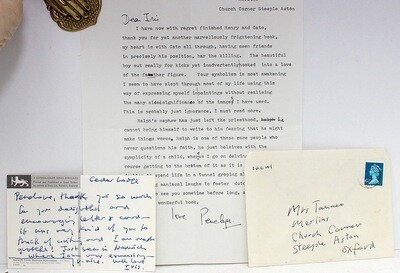 Church Corner Steeple Aston
Dear Iris
I have now with regret finished Henry and Cato,
thank you for yet another marvellously frightening book,
my heart is with Cato all through, having seen friends
in precisely his position, bar the killing. The beautiful
toy out really for kicks yet inadvertently into a love
of the father figure. Your symbolism is most awakening
I seem to have slept through most of my life using this
way of expressing myself in paintings without realising
the many significance of the images I have used.
This is probably just ignorance, I must read more.
Ralph's nephew has just left the priesthood,
cannot bring himself to write to him fearing that he might
make things worse, Ralph is one of those rare people who
never questions his faith, he just believes with the
simplicity of a child, I go on
course getting to the bottom of it as it in
to spend life in a tunnel groping
maniacal laughs to foster
see you sometime before long,
love Penelope
Cedar Lodge
Penelope, thank you so much
for your delightful and
encouraging letter & card –
it was very kind of you to
think of writing and I am most
grateful! Just back in
where I am very
Iris
LOCAL
Mrs Tanner
Merlins
Church Corner
Steeple Aston
Oxford